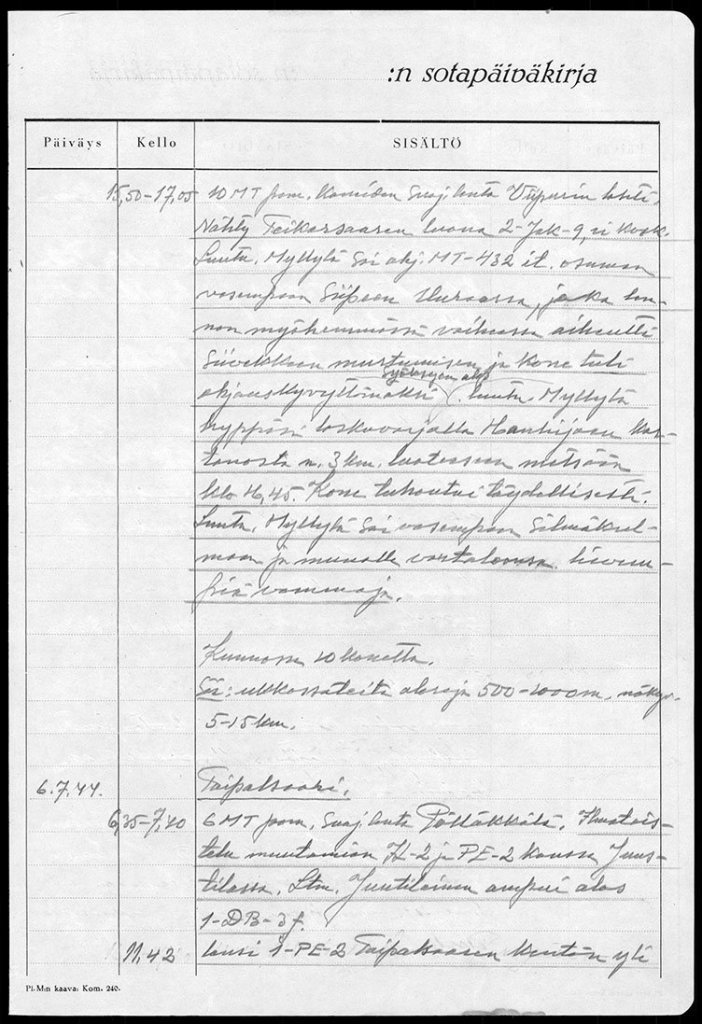 :n sotapäiväkirja
Päiväys Kello SISÄLTÖ
15,50-17,05 10 MT pom. koneiden suojausta Viipurin lahti.
Nähty Teikarsaaren luona 2-Jak-9, ei kosk.
Luutn. Myllylä sai ohj. MT-432 it. osuman
vasempaan siipeen Uuraassa, joka len-
non myöhemmässä vaiheessa aiheutti
siivekkeen murtumisen ja kone tuli
ohjauskyvyttömäksi syöksyen alas. Luutn. Myllylä
hyppäsi laskuvarjolla Hanhijoen kar-
tanosta n. 3 km. luoteeseen metsään
klo 16,45. Kone tuhoutui täydellisesti.
Luutn. Myllylä sai vasempaan silmäkul-
maan ja muualle vartaloonsa lievem-
piä vammoja.
Kunnossa 10 konetta.
Sää: ukkossateita alaraja 500-1000m, näkyv.
5-15 km.
6.7.44. Taipalsaari.
6,35-7,40 6 MT pom. suojausta Pölläkkälä. Ilmatais-
telu muutamien IL-2 ja PE-2 kanssa Juus-
tilassa. Ltm. Juutilainen ampui alas
1-DB-3f.
11,42 lensi 1-PE-2 Taipalsaaren kentän yli
Pl.M:n kaava: Kom. 240.